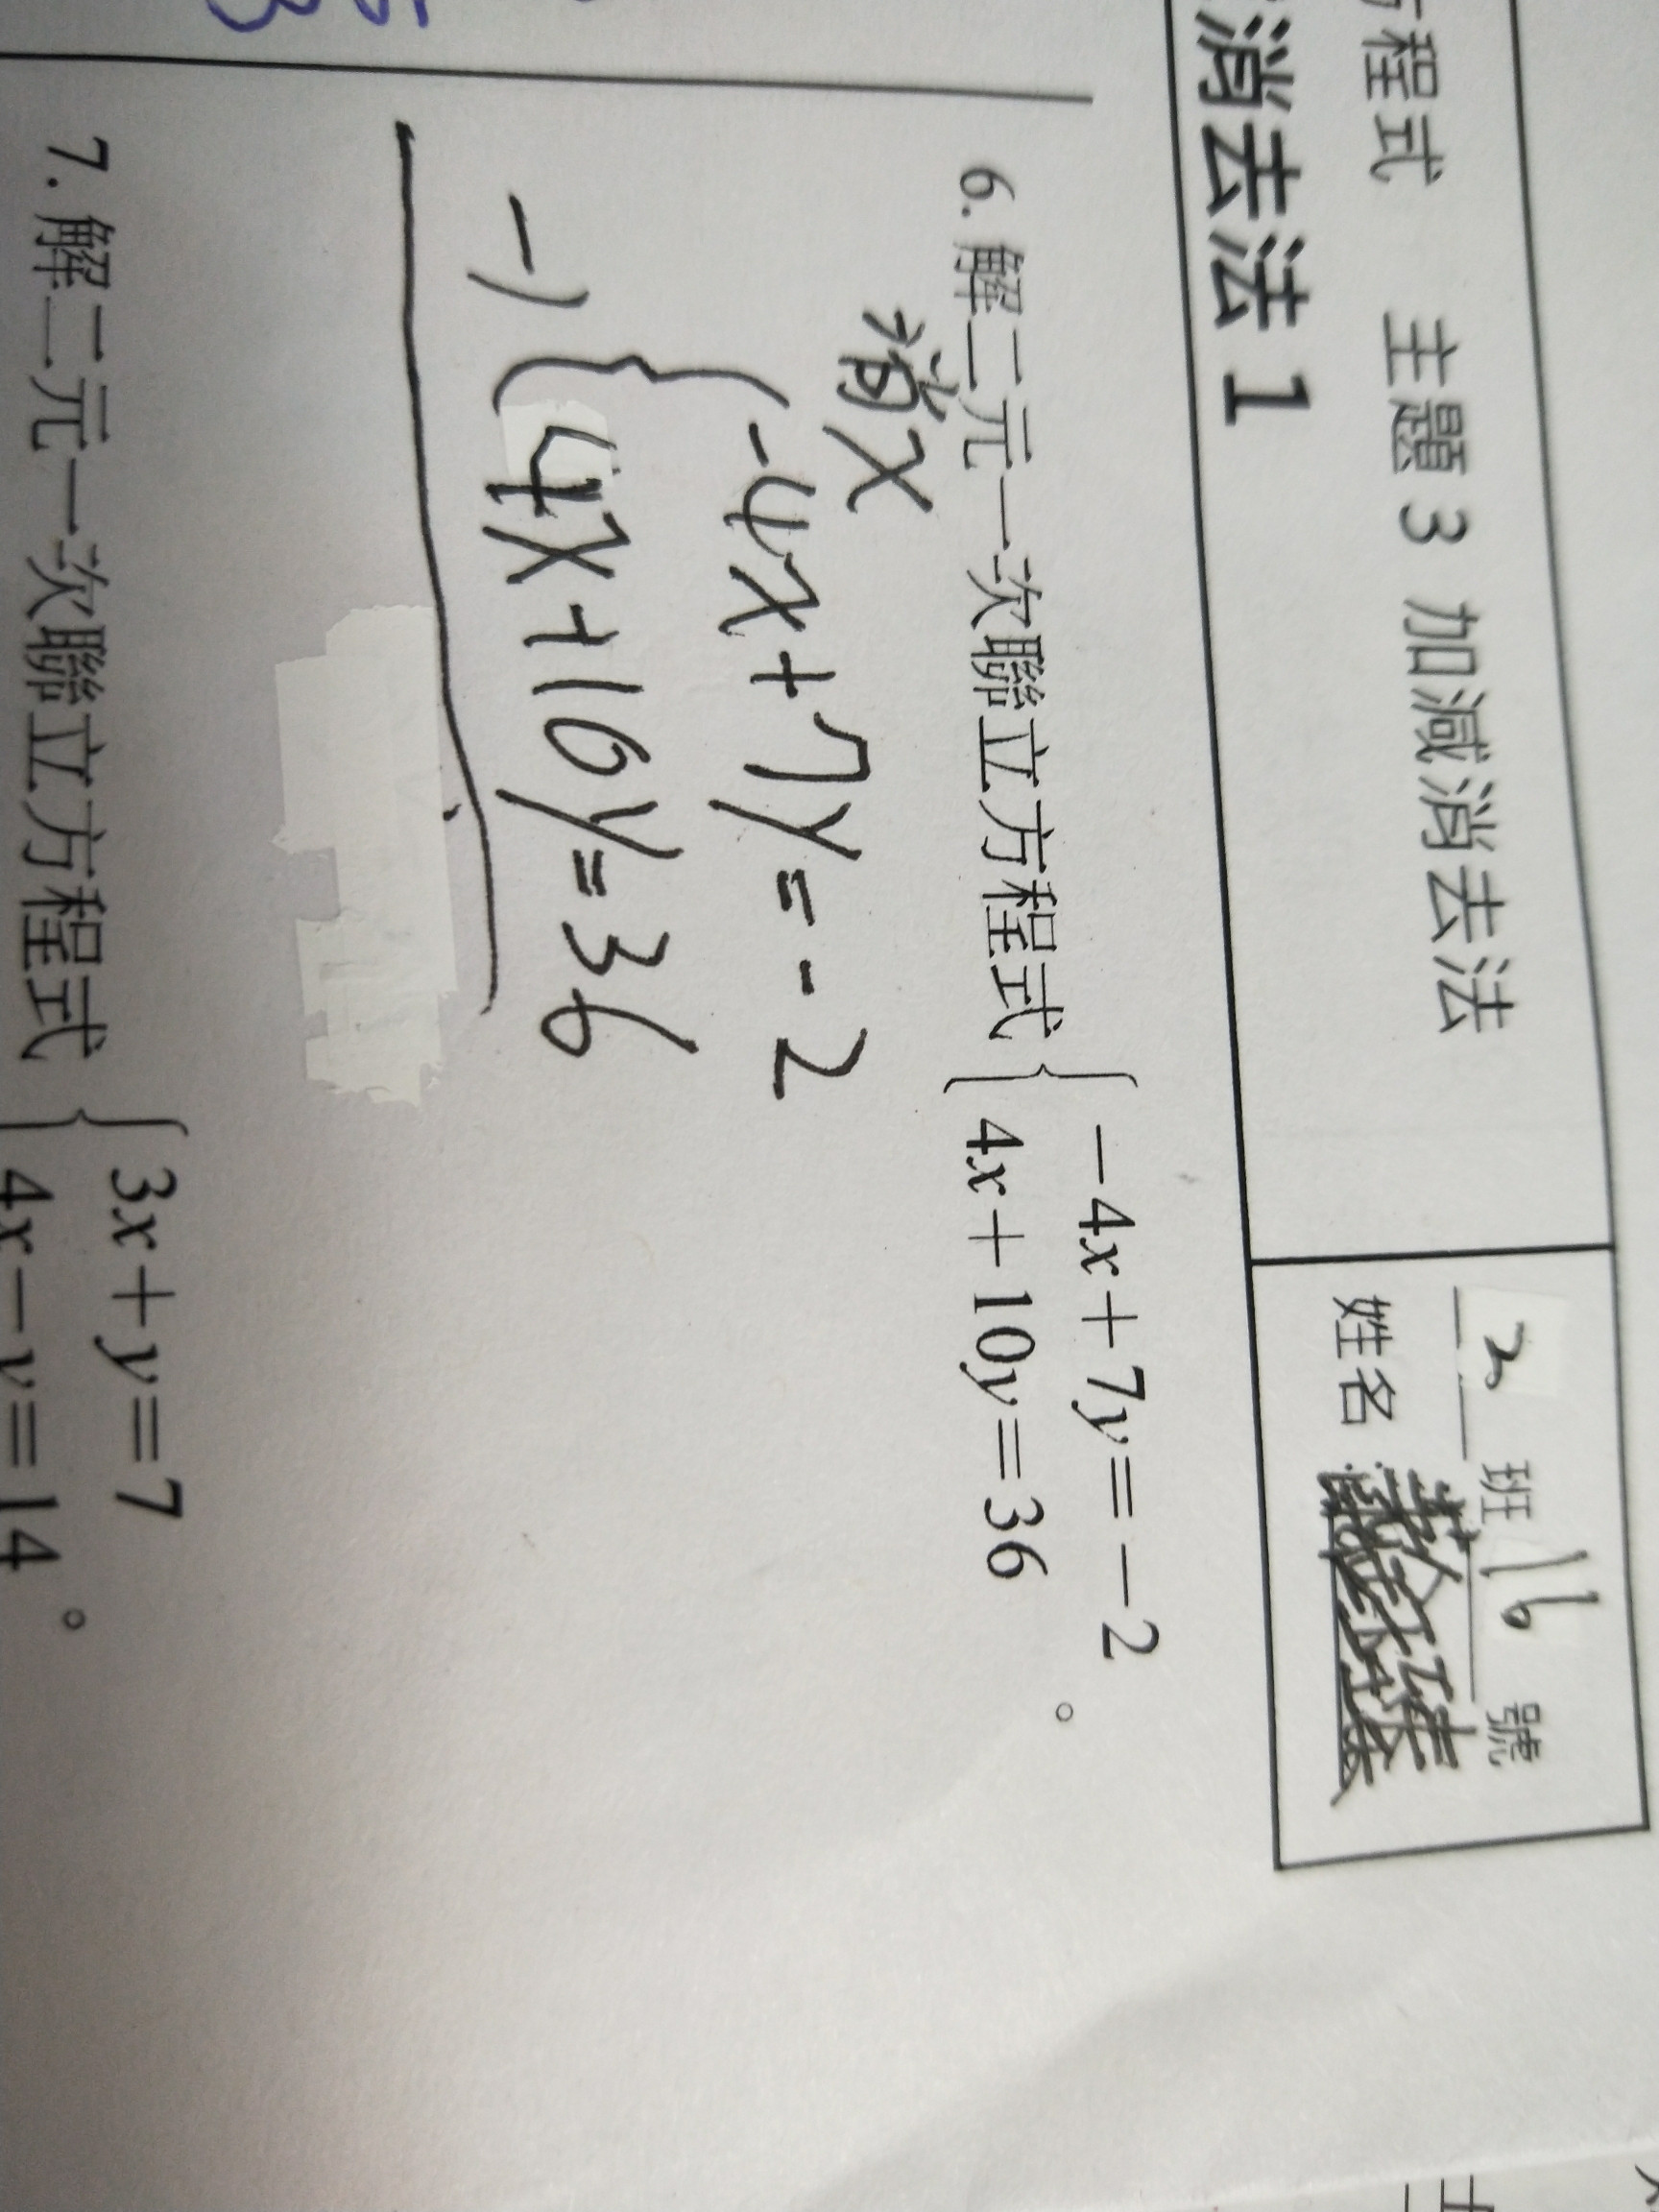 方程式 主題 3 加減消去法
消去法 1
2 班 16 號
姓名:
6. 解二元一次聯立方程式 { -4x+7y=-2
4x+10y=36 。
消x
{ -4x+7y=-2
-) 4x+10y=36
7. 解二元一次聯立方程式 { 3x+y=7
4x-y=14 。